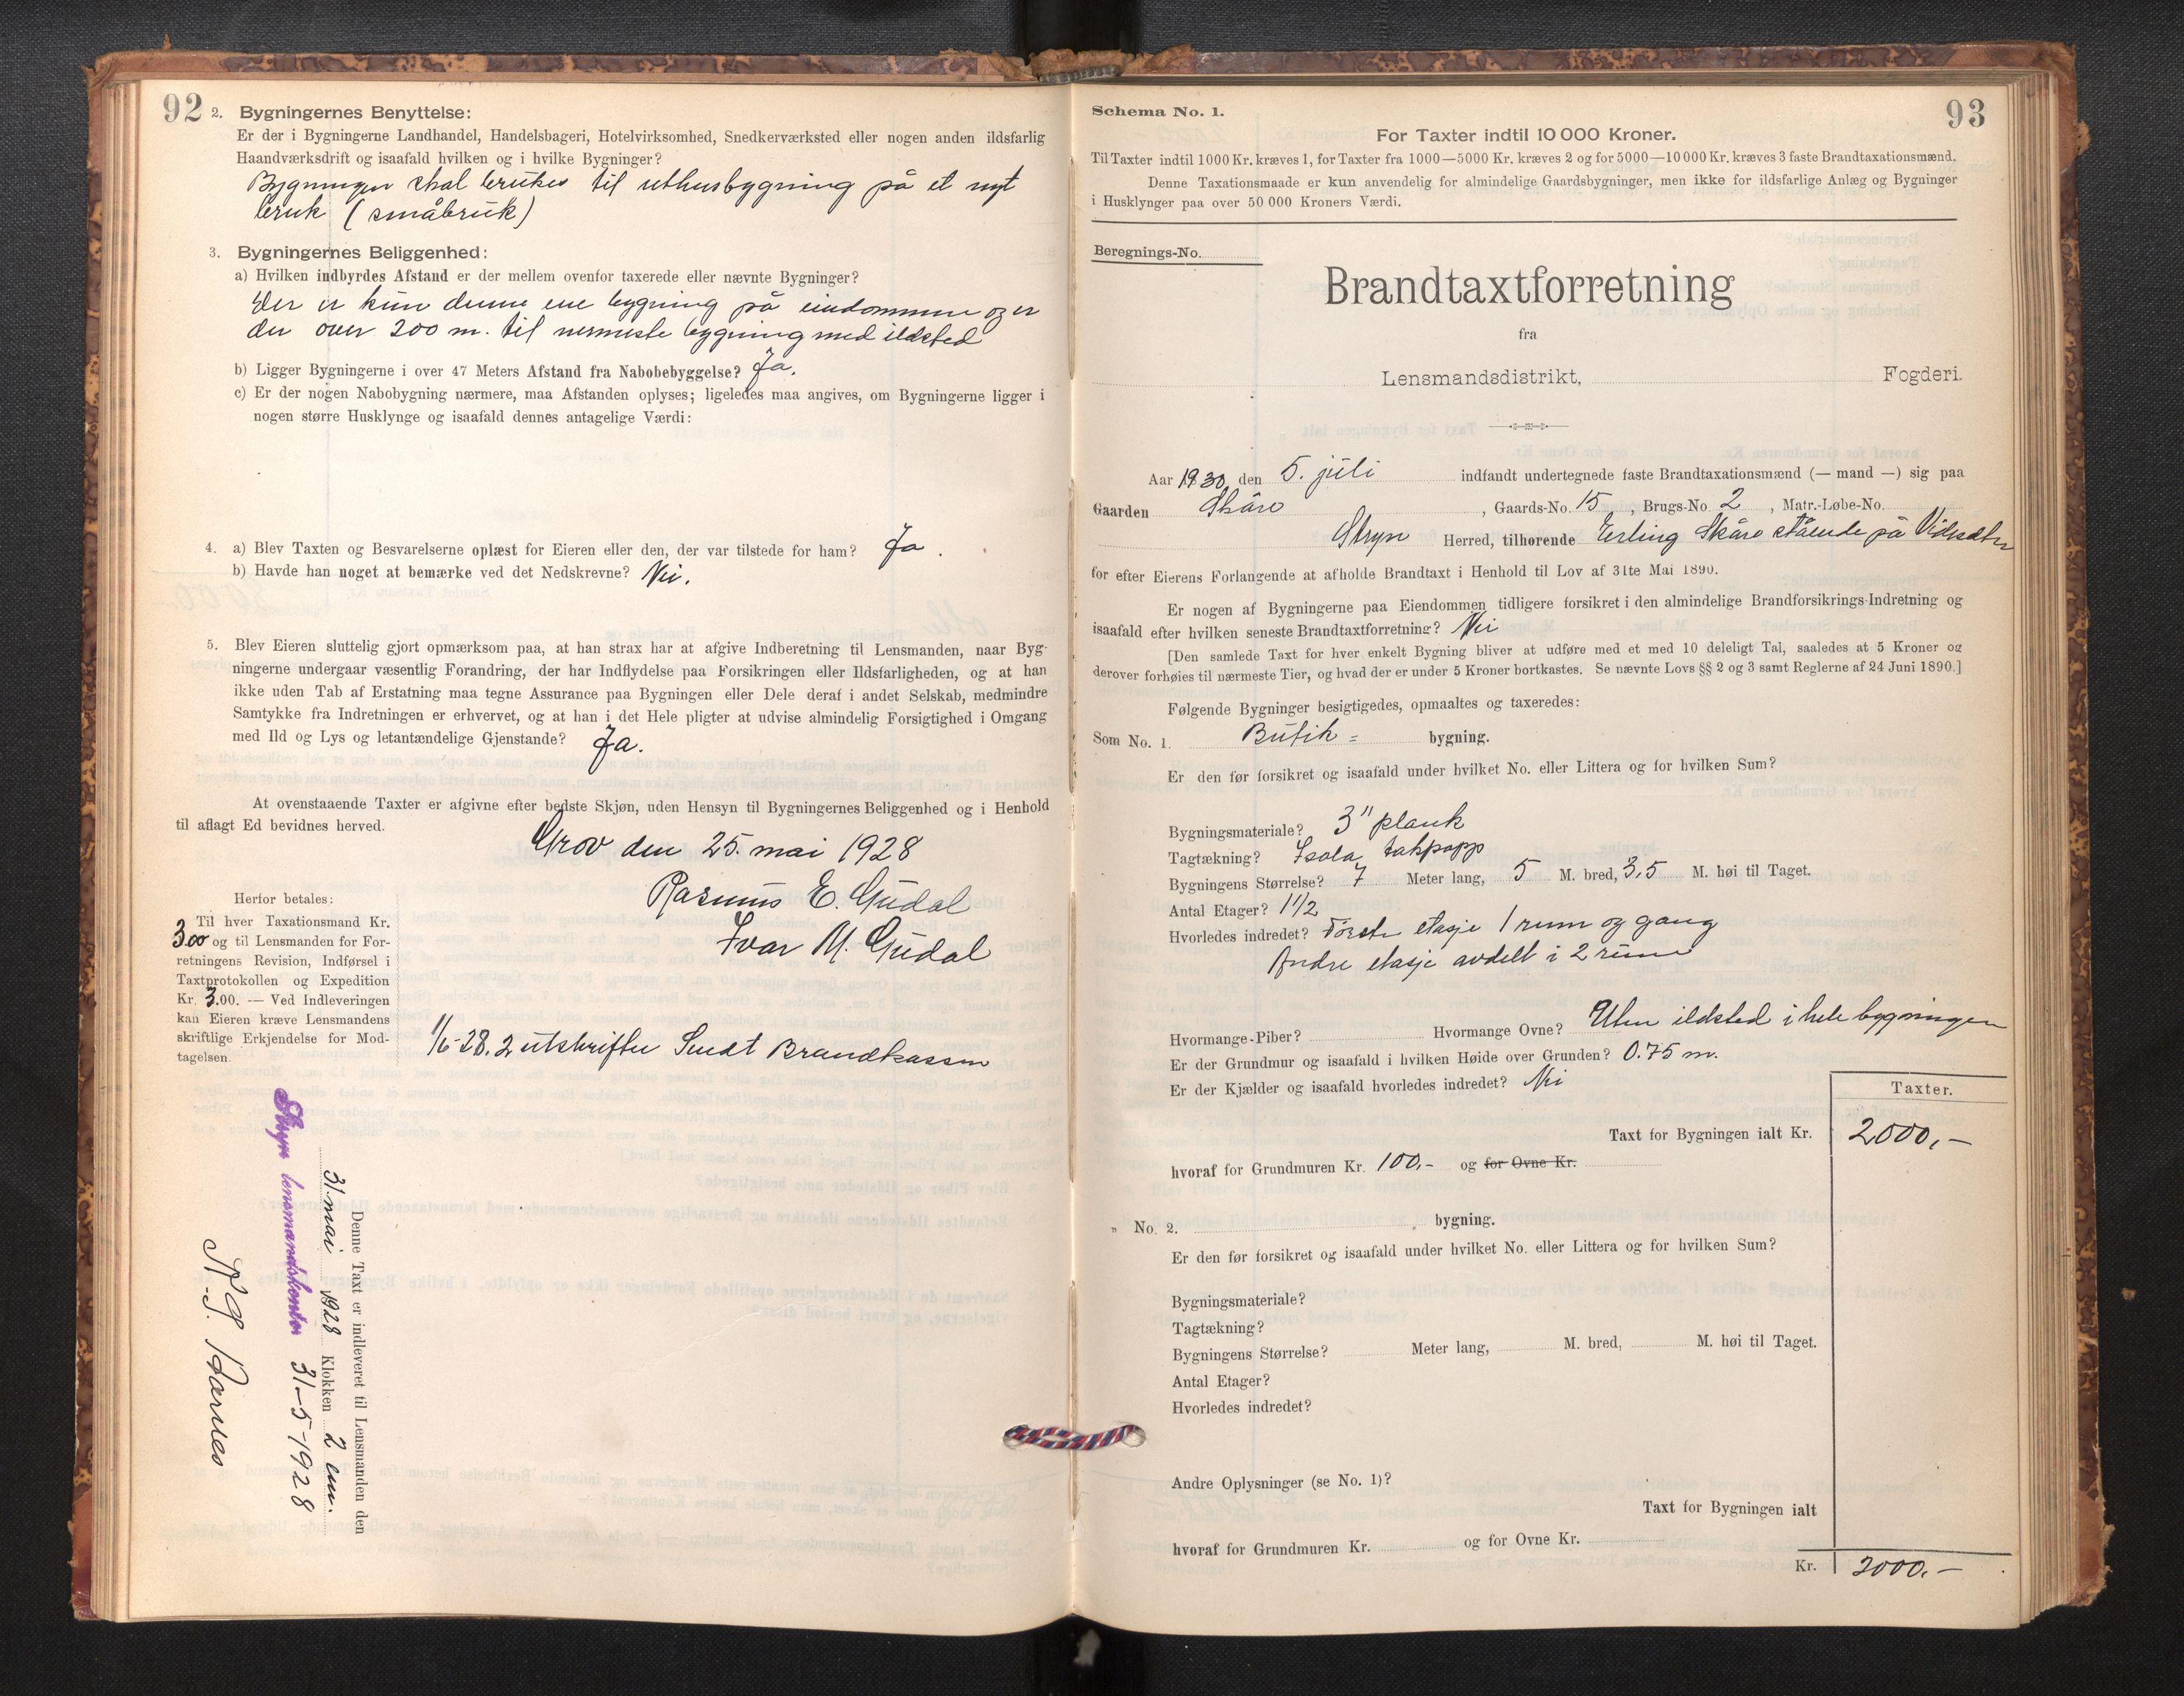 92
2. Bygningernes Benyttelse:
Er der i Bygningerne Landhandel, Handelsbageri, Hotelvirksomhed, Snedkerværksted eller nogen anden ildsfarlig
Haandværksdrift og isaafald hvilken og i hvilke Bygninger?
Bygningen skal brukes til uthusbygning på et nyt
bruk (småbruk)
3. Bygningernes Beliggenhed:
a) Hvilken indbyrdes Afstand er der mellem ovenfor taxerede eller nævnte Bygninger?
Der er kun denne ene bygning på eiendommen og er
der over 200 m. til nermeste bygning med ildsted
b) Ligger Bygningerne i over 47 Meters Afstand fra Nabobebyggelse? Ja.
c) Er der nogen Nabobygning nærmere, maa Afstanden oplyses; ligeledes maa angives, om Bygningerne ligger i
nogen større Husklynge og isaafald dennes antagelige Værdi:
4. a) Blev Taxten og Besvarelserne oplæst for Eieren eller den, der var tilstede for ham? Ja.
b) Havde han noget at bemærke ved det Nedskrevne? Nei.
5. Blev Eieren sluttelig gjort opmærksom paa, at han strax har at afgive Indberetning til Lensmanden, naar Byg-
ningerne undergaar væsentlig Forandring, der har Indflydelse paa Forsikringen eller Ildsfarligheden, og at han
ikke uden Tab af Erstatning maa tegne Assurance paa Bygningen eller Dele deraf i andet Selskab, medmindre
Samtykke fra Indretningen er erhvervet, og at han i det Hele pligter at udvise almindelig Forsigtighed i Omgang
med Ild og Lys og letantændelige Gjenstande? Ja.
At ovenstaaende Taxter er afgivne efter bedste Skjøn, uden Hensyn til Bygningernes Beliggenhed og i Henhold
til aflagt Ed bevidnes herved.
Grov den 25. mai 1928
Rasmus E. Gudal
Ivar M. Gudal
Herfor betales:
Til hver Taxationsmand Kr.
3.00 og til Lensmanden for For-
retningens Revision, Indførsel i
Taxtprotokollen og Expedition
Kr. 3.00. — Ved Indleveringen
kan Eieren kræve Lensmandens
skriftlige Erkjendelse for Mod-
tagelsen.
1/6-28. 2 utskrifter Sendt Brandkassen
Denne Taxt er indleveret til Lensmanden den
31 mai 1928 Klokken 2 em.
Stryn lensmandskontor 31-5-1928
93
Schema No. 1.
For Taxter indtil 10 000 Kroner.
Til Taxter indtil 1000 Kr. kræves 1, for Taxter fra 1000—5000 Kr. kræves 2 og for 5000—10 000 Kr. kræves 3 faste Brandtaxationsmænd.
Denne Taxationsmaade er kun anvendelig for almindelige Gaardsbygninger, men ikke for ildsfarlige Anlæg og Bygninger
i Husklynger paa over 50 000 Kroners Værdi.
Beregnings-No.
Brandtaxtforretning
fra
Lensmandsdistrikt, Fogderi.
Aar 1930 den 5. juli indfandt undertegnede faste Brandtaxationsmænd (— mand —) sig paa
Gaarden Skåre, Gaards-No. 15, Brugs-No. 2, Matr.-Løbe-No.
Stryn Herred, tilhørende Erling Skåre stående på Videsæter
for efter Eierens Forlangende at afholde Brandtaxt i Henhold til Lov af 31te Mai 1890.
Er nogen af Bygningerne paa Eiendommen tidligere forsikret i den almindelige Brandforsikrings-Indretning og
isaafald efter hvilken seneste Brandtaxtforretning? Nei
[Den samlede Taxt for hver enkelt Bygning bliver at udføre med et med 10 deleligt Tal, saaledes at 5 Kroner og
derover forhøies til nærmeste Tier, og hvad der er under 5 Kroner bortkastes. Se nævnte Lovs §§ 2 og 3 samt Reglerne af 24 Juni 1890.]
Følgende Bygninger besigtigedes, opmaaltes og taxeredes:
Som No. 1. Butik = bygning.
Er den før forsikret og isaafald under hvilket No. eller Littera og for hvilken Sum?
Bygningsmateriale? 3" plank
Tagtækning? Isola takpapp
Bygningens Størrelse? 7 Meter lang, 5 M. bred, 3,5 M. høi til Taget.
Antal Etager? 1 1/2
Hvorledes indredet? Første etasje 1 rum og gang
Andre etasje avdelt i 2 rum
Hvormange Piber? Hvormange Ovne? Uten ildsted i hele bygningen
Er der Grundmur og isaafald i hvilken Høide over Grunden? 0.75 m.
Er der Kjælder og isaafald hvorledes indredet? Nei
Taxter.
Taxt for Bygningen ialt Kr. 2000,-
hvoraf for Grundmuren Kr. 100,- og for Ovne Kr.
„ No. 2. bygning.
Er den før forsikret og isaafald under hvilket No. eller Littera og for hvilken Sum?
Bygningsmateriale?
Tagtækning?
Bygningens Størrelse? Meter lang, M. bred, M. høi til Taget.
Antal Etager?
Hvorledes indredet?
Andre Oplysninger (se No. 1)?
Taxt for Bygningen ialt
hvoraf for Grundmuren Kr. og for Ovne Kr.
Kr. 2000,-